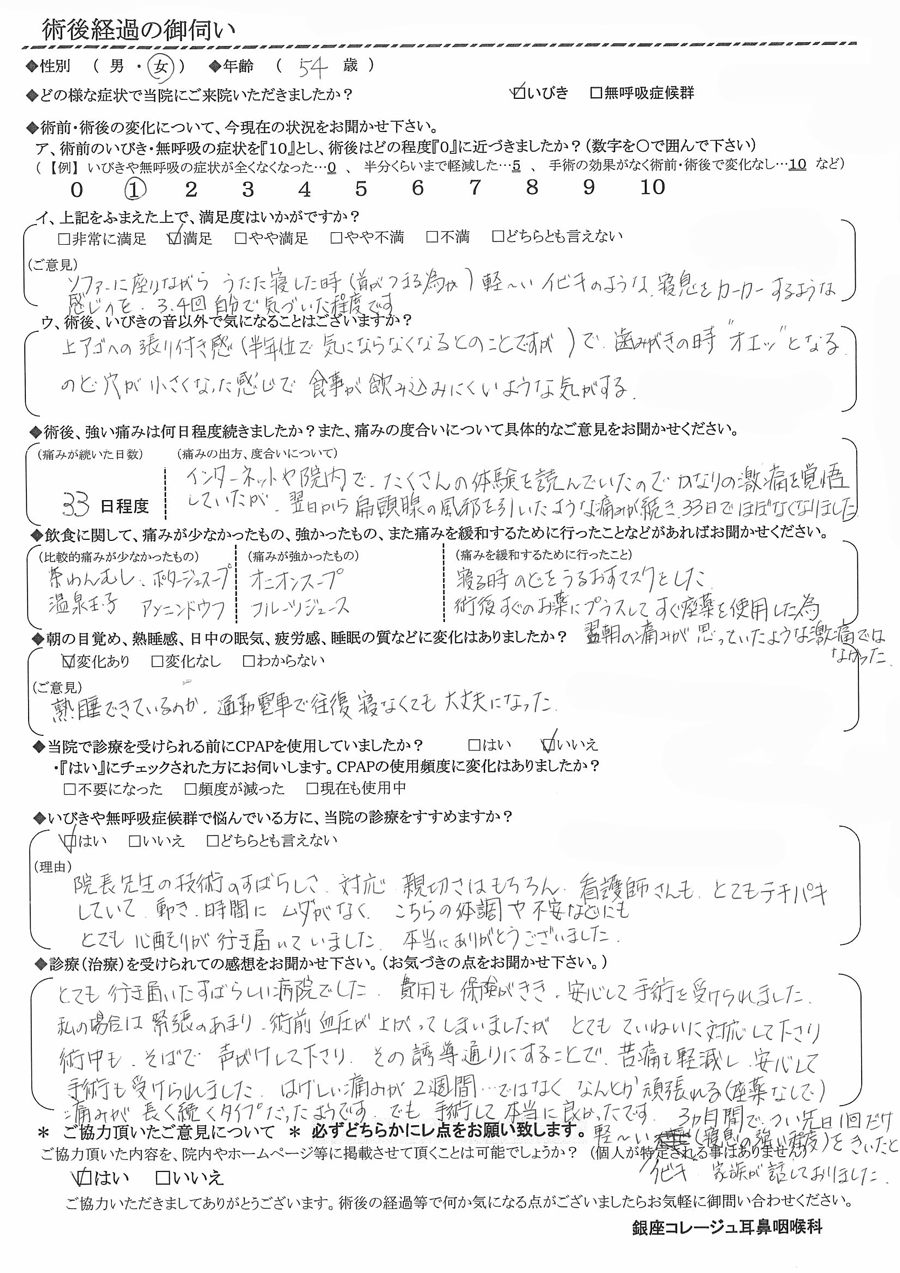 術後経過の御伺い
◆性別 （ 男 ・ 女 ） ◆年齢 （ 54 歳 ）
◆どの様な症状で当院にご来院いただきましたか？ ☑いびき □無呼吸症候群
◆術前・術後の変化について、今現在の状況をお聞かせ下さい。
ア、術前のいびき・無呼吸の症状を『10』とし、術後はどの程度『0』に近づきましたか？（数字を○で囲んで下さい）
（【例】いびきや無呼吸の症状が全くなくなった…0 、 半分くらいまで軽減した…5 、 手術の効果がなく術前・術後で変化なし…10 など）
0 1 2 3 4 5 6 7 8 9 10
イ、上記をふまえた上で、満足度はいかがですか？
□非常に満足 ☑満足 □やや満足 □やや不満 □不満 □どちらとも言えない
（ご意見）
ソファーに座りながら うたた寝した時（首がつまる為か）軽〜いイビキのような、寝息をカーカーするような
感じィを、3.4回自分で気づいた程度です
ウ、術後、いびきの音以外で気になることはございますか？
上アゴへの張り付き感（半年位で気にならなくなるとのことですが）で、歯みがきの時"オエッ"となる
のど穴が小さくなった感じで 食事が飲み込みにくいような気がする．
◆術後、強い痛みは何日程度続きましたか？また、痛みの度合いについて具体的なご意見をお聞かせください。
（痛みが続いた日数） （痛みの出方、度合いについて）
インターネットや院内で、たくさんの体験を読んでいたのでかなりの激痛を覚悟
33 日程度 していたが、翌日から扁頭腺の風邪を引いたような痛みが続き、33日でほぼなくなりました
◆飲食に関して、痛みが少なかったもの、強かったもの、また痛みを緩和するために行ったことなどがあればお聞かせください。
（比較的痛みが少なかったもの） （痛みが強かったもの） （痛みを緩和するために行ったこと）
茶わんむし、ポタージュスープ オニオンスープ 寝る時のどをうるおすマスクをした
温泉玉子 アンニンドウフ フルーツジュース 術後すぐのお薬にプラスしてすぐ座薬を使用した為
◆朝の目覚め、熟睡感、日中の眠気、疲労感、睡眠の質などに変化はありましたか？ 翌朝の痛みが思っていたような激痛では
なかった．
☑変化あり □変化なし □わからない
（ご意見）
熟睡できているのか、通勤電車で往復寝なくても大丈夫になった．
◆当院で診療を受けられる前にCPAPを使用していましたか？ □はい ☑いいえ
・『はい』にチェックされた方にお伺いします。CPAPの使用頻度に変化はありましたか？
□不要になった □頻度が減った □現在も使用中
◆いびきや無呼吸症候群で悩んでいる方に、当院の診療をすすめますか？
☑はい □いいえ □どちらとも言えない
（理由）
院長先生の技術のすばらしさ、対応 親切さはもちろん、看護師さんも、とてもテキパキ
していて、動き、時間にムダがなく、こちらの体調や不安などにも
とても心配りが行き届いていました、本当にありがとうございました．
◆診療（治療）を受けられての感想をお聞かせ下さい。（お気づきの点をお聞かせ下さい。）
とても行き届いたすばらしい病院でした、費用も保険がきき、安心して手術を受けられました．
私の場合は緊張のあまり、術前血圧が上がってしまいましたが とてもていねいに対応して下さり
術中も、そばで声がけして下さり、その誘導通りにすることで、苦痛も軽減し、安心して
手術も受けられました、はげしい痛みが2週間…ではなくなんとか頑張れる（座薬なしで）
痛みが長く続くタイプだったようです、でも手術して本当に良かったです、3ヵ月間で、つい先日1回だけ
＊ ご協力頂いたご意見について ＊ 必ずどちらかにレ点をお願い致します。 軽〜い（寝息の強い程度）をきいたと
ご協力頂いた内容を、院内やホームページ等に掲載させて頂くことは可能でしょうか？ （個人が特定される事はありません）
イビキ 家族が話しておりました．
☑はい □いいえ
ご協力いただきましてありがとうございます。術後の経過等で何か気になる点がございましたらお気軽に御問い合わせください。
銀座コレージュ耳鼻咽喉科